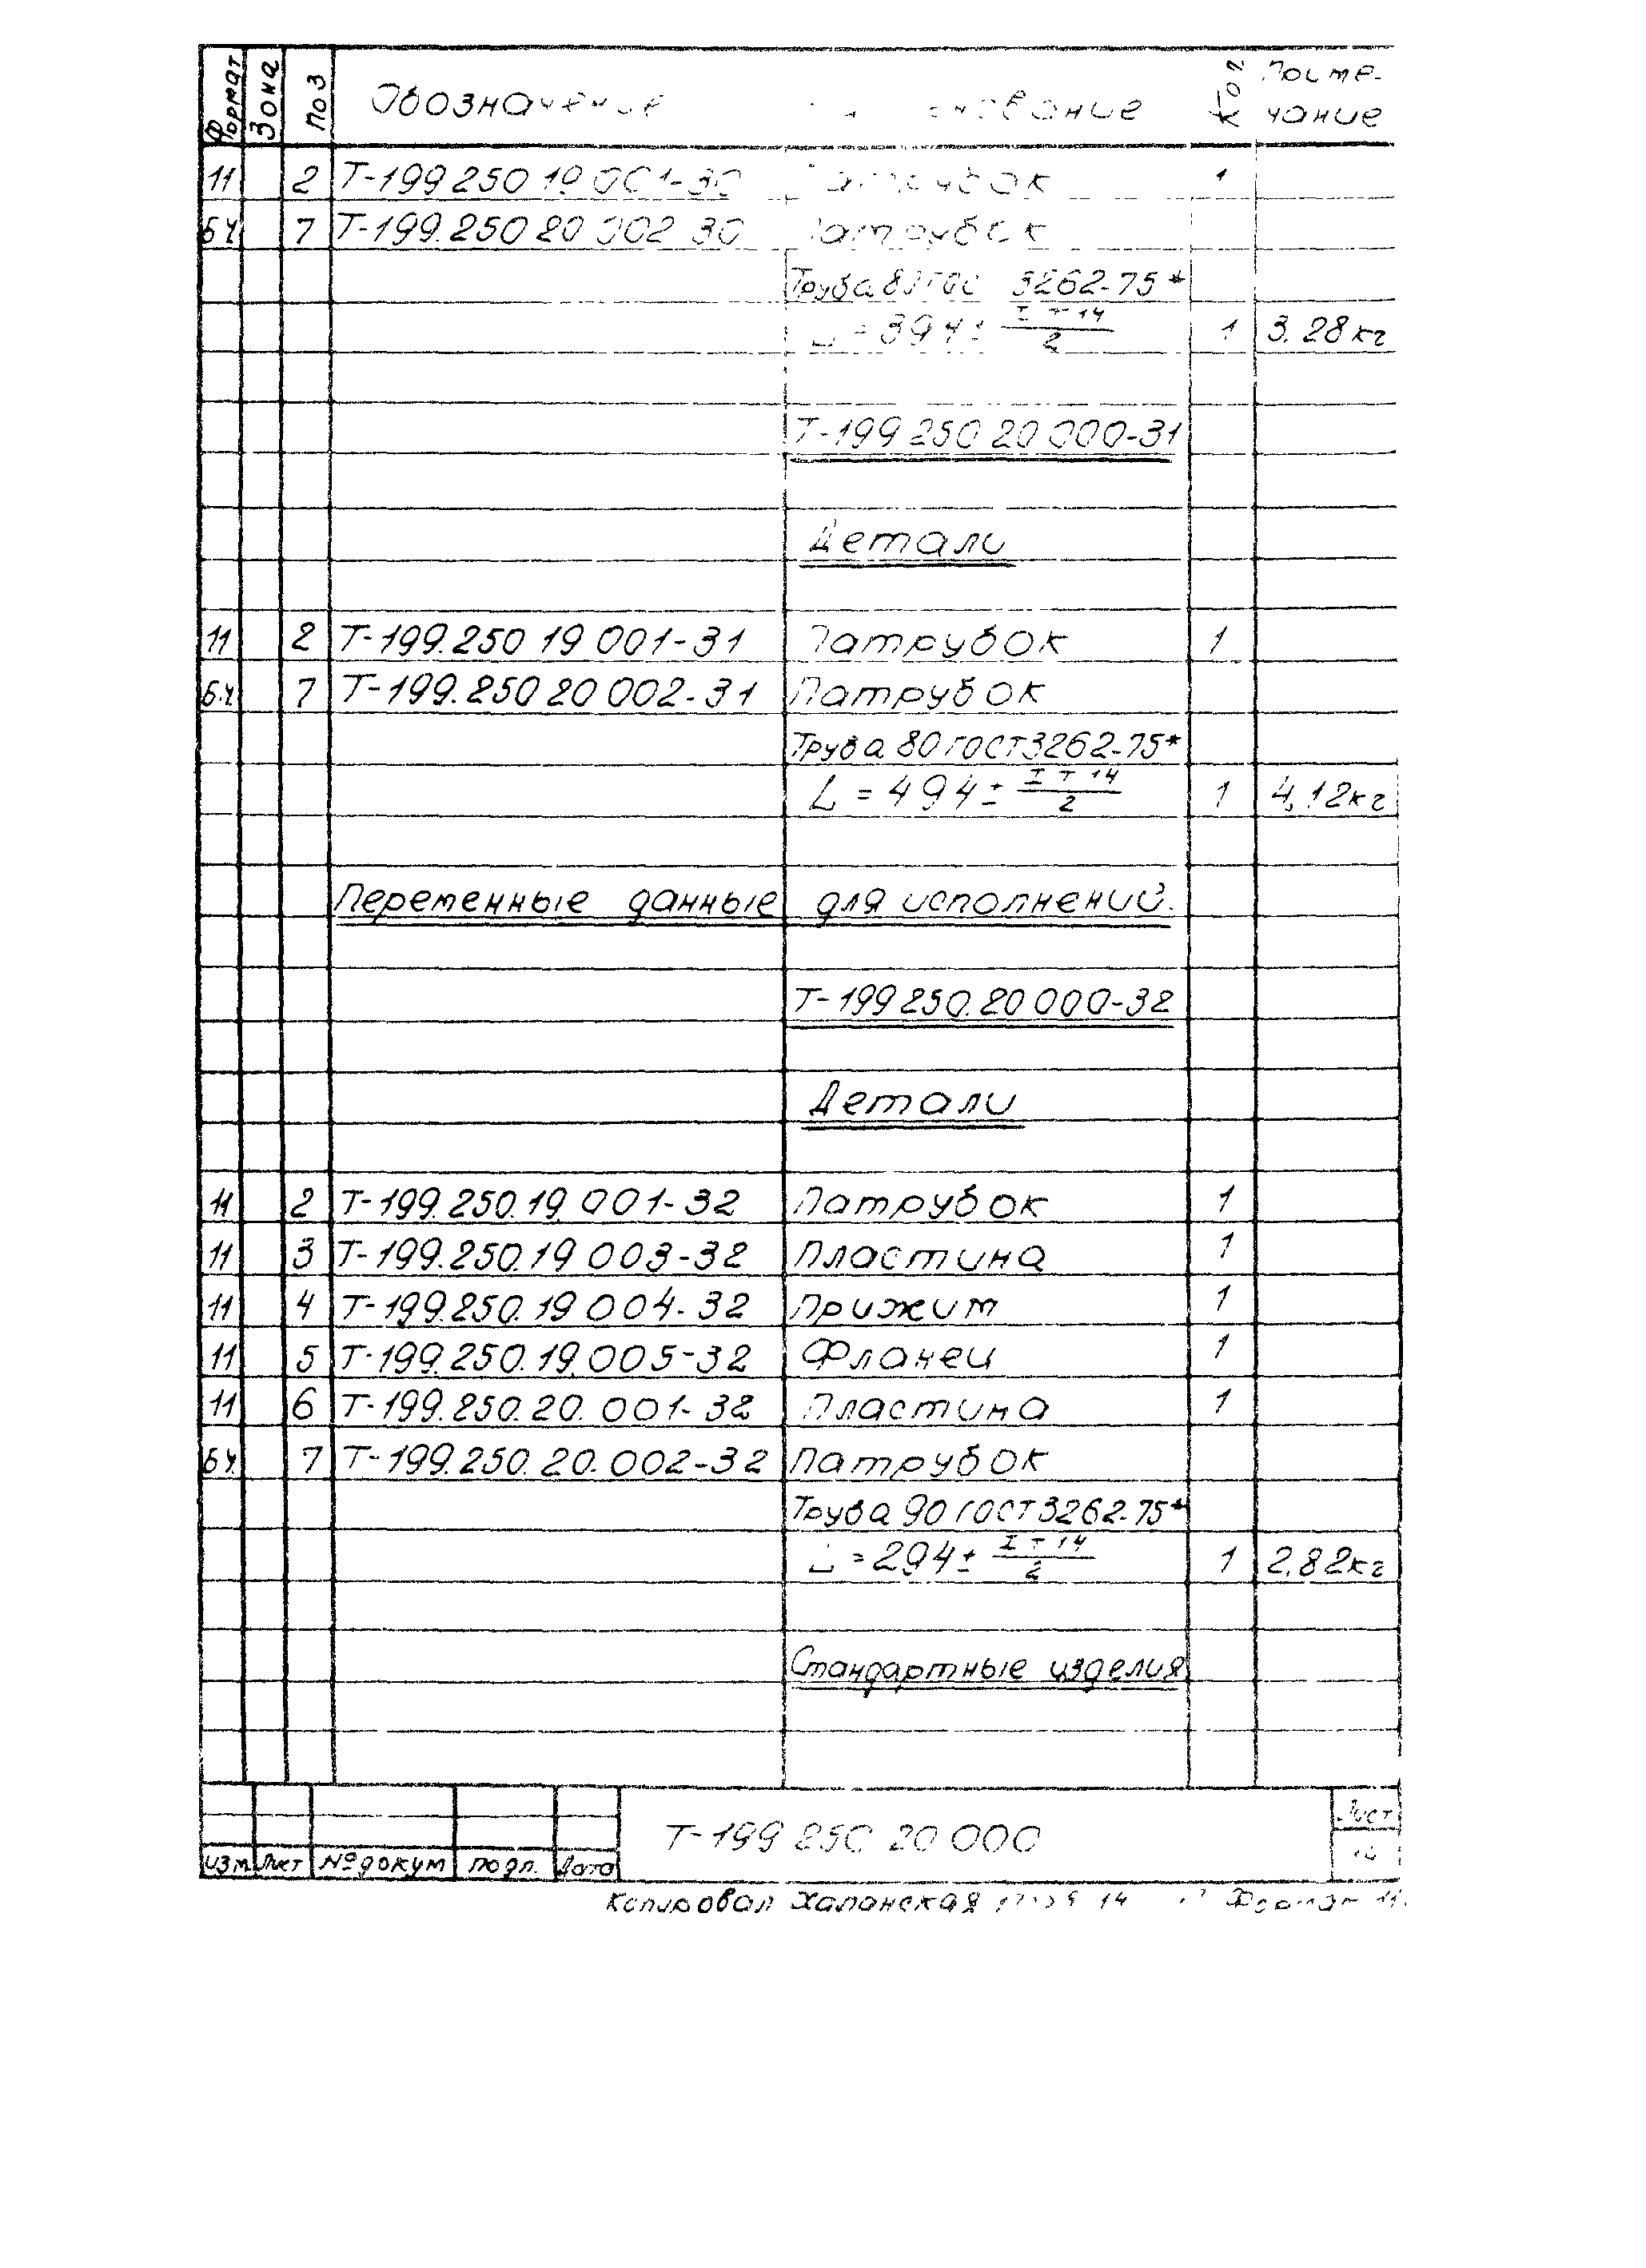 Формат Зона Поз Обозначение Кол
чание
11 2 Т-199 250 19 001-30 Патрубок 1
БЧ 7 Т-199.250 20 002 30 Патрубок
Труба 80 ГОС 3262-75*
L = 394 ± IT14/2 1 3.28кг
Т-199 250 20 000-31
Детали
11 2 Т-199.250 19 001-31 Патрубок 1
Б.Ч. 7 Т-199.250 20 002-31 Патрубок
Труба 80 ГОСТ 3262-75*
L = 494 ± IT14/2 1 4,12кг
Переменные данные для исполнений.
Т-199 250.20 000-32
Детали
11 2 Т-199.250.19.001-32 Патрубок 1
11 3 Т-199.250.19 003-32 Пластина 1
11 4 Т-199.250.19 004-32 Прижим 1
11 5 Т-199.250.19.005-32 Фланец 1
11 6 Т-199.250.20.001-32 Пластина 1
БЧ. 7 Т-199.250.20.002-32 Патрубок
Труба 90 ГОСТ 3262-75*
L = 294 ± IT14/2 1 2,82кг
Стандартные изделия
Т-199 250 20 000
Лист
Изм Лист № докум подп. Дата
Копировал Халанская Формат 11